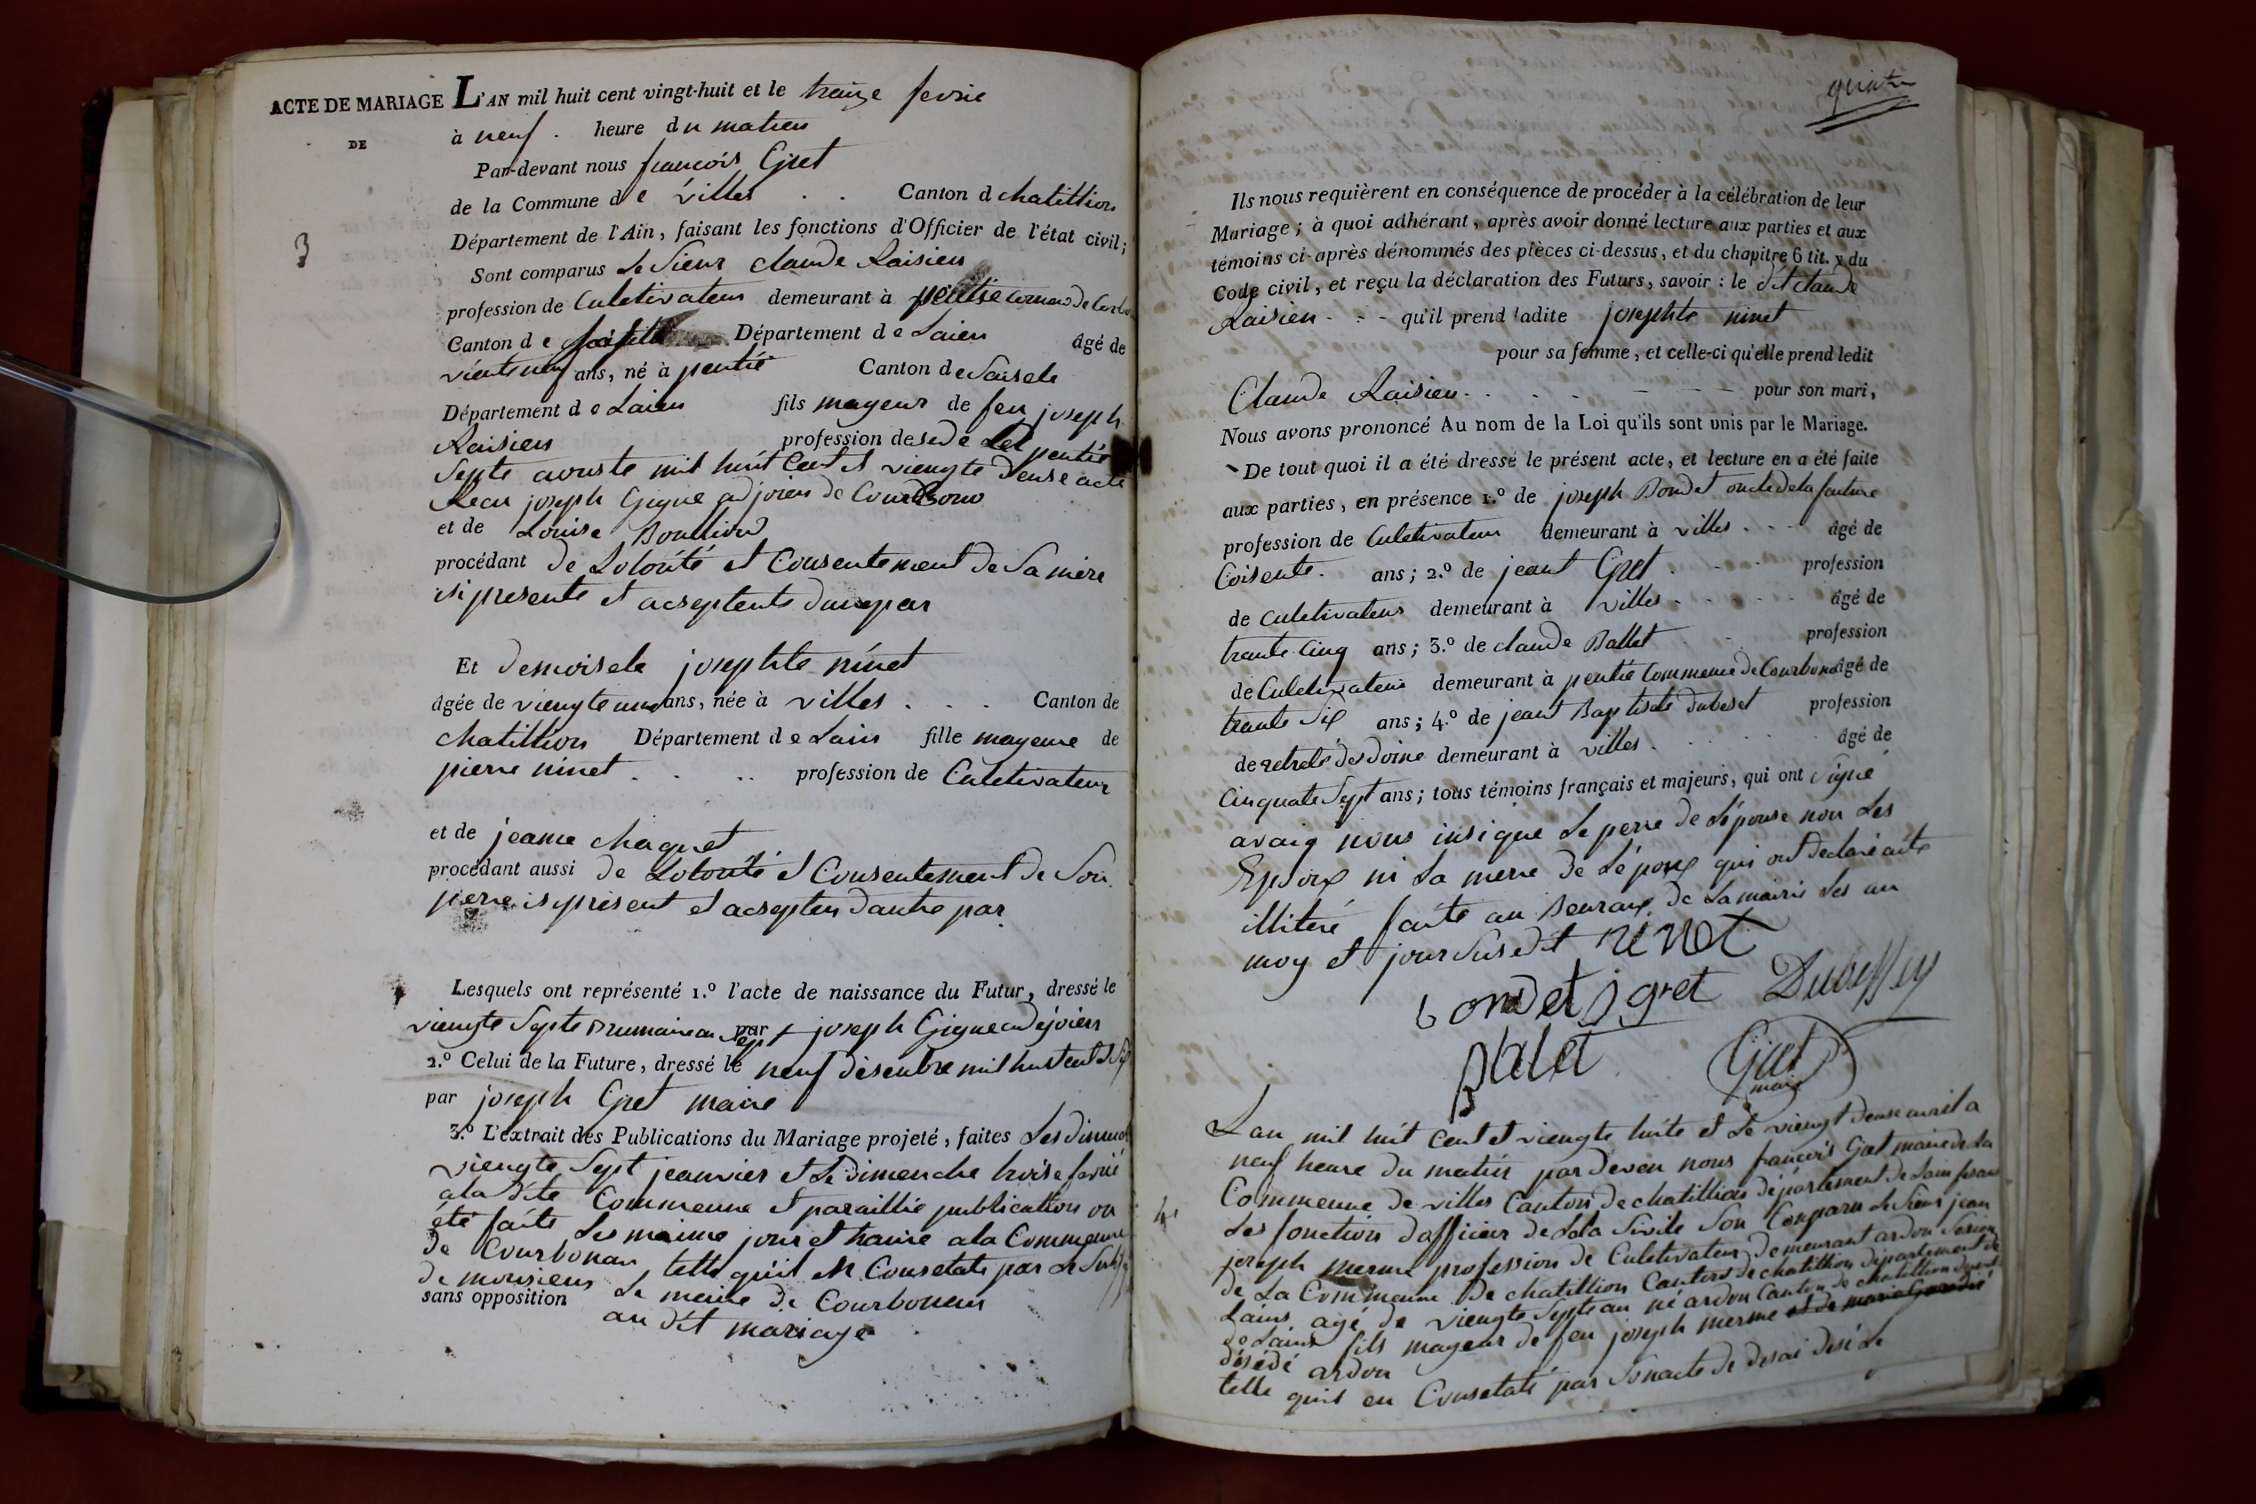 ACTE DE MARIAGE
DE
3
L'AN mil huit cent vingt-huit et le traize fevrie
à neuf . heure du matien
Par-devant nous francois Gret
de la Commune de villes . . Canton d chatillion
Département de l'Ain, faisant les fonctions d'Officier de l'état civil;
Sont comparus Le Sieur claude Raisien
profession de Culetivateur demeurant à
Canton de Département de Laien âgé de
ans, né à pentié Canton de
Département de Laien fils mayeur de feu joseph
Raisien profession de
Septe aouste mil huit Cent et viengte deuse acte
Recu joseph Gigne adjoien de
et de Louise Boullioud
procédant de Lolonté et Consentement de Sa mère
isi presente et acseptente dunepar
Et demoisele josephte ninet
âgée de viengte une ans, née à villes . . . Canton de
chatillion Département de Lain fille mayeure de
pierre ninet . . .. profession de Culetivateur
et de jeanne chaquet
procédant aussi de Lolonté et Consentement de Son
pere isi présent et acsepten dautre par
Lesquels ont représenté 1.º l'acte de naissance du Futur, dressé le
viengte Septe Brumaire an Sept par joseph Gigne adejoien
2.º Celui de la Future, dressé le neuf désenbre mil huit Cent et Six
par joseph Gret maire
3.º L'extrait des Publications du Mariage projeté, faites Les
viengte Sept jeanvier et Le Dimenche troise fevrié
ala dite Commeune et paraillie publication on
été faite Les maime jour et haure ala Commeune
de Courbonau telle qu'il et Consetate par Le
de monsieur Le maire de Courbonau
sans opposition au dit mariage
quatre
Ils nous requièrent en conséquence de procéder à la célébration de leur
Mariage; à quoi adhérant, après avoir donné lecture aux parties et aux
témoins ci-après dénommés des pièces ci-dessus, et du chapitre 6 tit. v du
Code civil, et reçu la déclaration des Futurs, savoir : le dit claude
Raisien - - - qu'il prend ladite josephte ninet
pour sa femme, et celle-ci qu'elle prend ledit
Claude Raisien . . . . — — — pour son mari,
Nous avons prononcé Au nom de la Loi qu'ils sont unis par le Mariage.
De tout quoi il a été dressé le présent acte, et lecture en a été faite
aux parties, en présence 1.º de joseph Bondet oncle de la future
profession de Culetivateur demeurant à villes . - - âgé de
Coisente . ans; 2.º de jeant Gret . - - profession
de Culetivateur demeurant à villes . - - - âgé de
trante Cinq ans; 3.º de claude Ballet profession
de Culetivateur demeurant à pentié Commeune de Courbonau âgé de
trante Six ans; 4.º de jeant Baptiste profession
de retraité des doine demeurant à villes . . . . . âgé de
Cinquate Sept ans; tous témoins français et majeurs, qui ont Signé
avaiq nous insi que Le pere de Lépouse non Les
Epsoux ni La mere de Lépoux qui ont declaré aitre
illitéré faite au Beuraux de Lamairie Les an
moy et jour Sus dit ninet
bondet j gret
Balet Gret
maire
4e
Lan mil huit Cent et viengte huite et Le viengt deuse avril a
neuf heure du matin par deven nous francois Gret maire de La
Commeune de villes Canton de chatillion département de Lain fesant
Les fonction dofficier de Leta Sivile Son Conparu Le Sieur jean
joseph merme profession de Culetivateur demeurant ardon Sesion
de La Commeune de chatillion Canton de chatillion département de
Lains agé de viengte Septe an né ardon Canton de chatillion
de Lains fils mayeur de feu joseph merme
désédé ardon
telle quil en Consetaté par Sonacte de